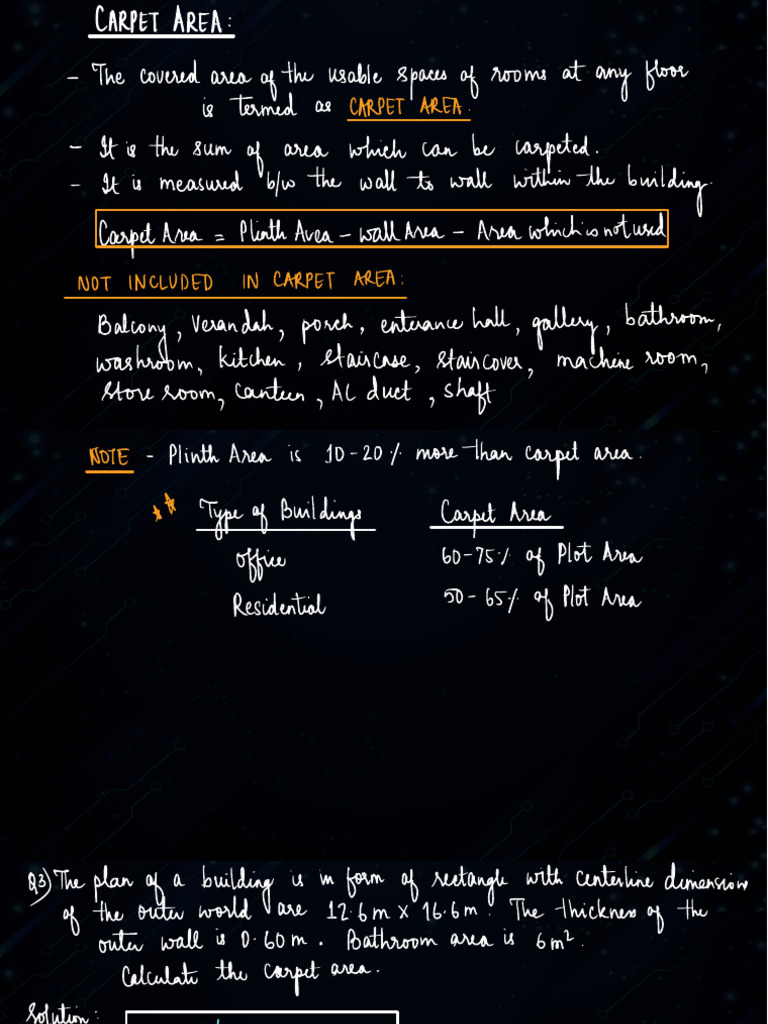 CARPET AREA:
- The covered area of the usable spaces of rooms at any floor
is termed as CARPET AREA.
- It is the sum of area which can be carpeted.
- It is measured b/w the wall to wall within the building.
Carpet Area = Plinth Area - wall Area - Area which is not used
NOT INCLUDED IN CARPET AREA:
Balcony, Verandah, porch, enterance hall, gallery, bathroom,
washroom, kitchen, staircase, staircover, machine room,
Store room, Canteen, AC duct, shaft
NOTE - Plinth Area is 10-20% more than carpet area.
** Type of Buildings Carpet Area
Office 60-75% of Plot Area
Residential 50-65% of Plot Area
Q3) The plan of a building is in form of rectangle with centerline dimension
of the outer world are 12.6m x 16.6m. The thickness of the
outer wall is 0.60m. Bathroom area is 6m².
Calculate the carpet area.
Solution: